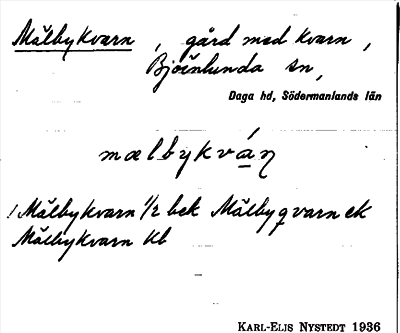 Mälbykvarn, gård med kvarn,
Björnlunda sn,
Daga hd, Södermanlands län
mælbykvą́ṇ
Mälbykvarn 1/2 bek Mälbyqvarn ek
Mälbykvarn kb
KARL-ELIS NYSTEDT 1936